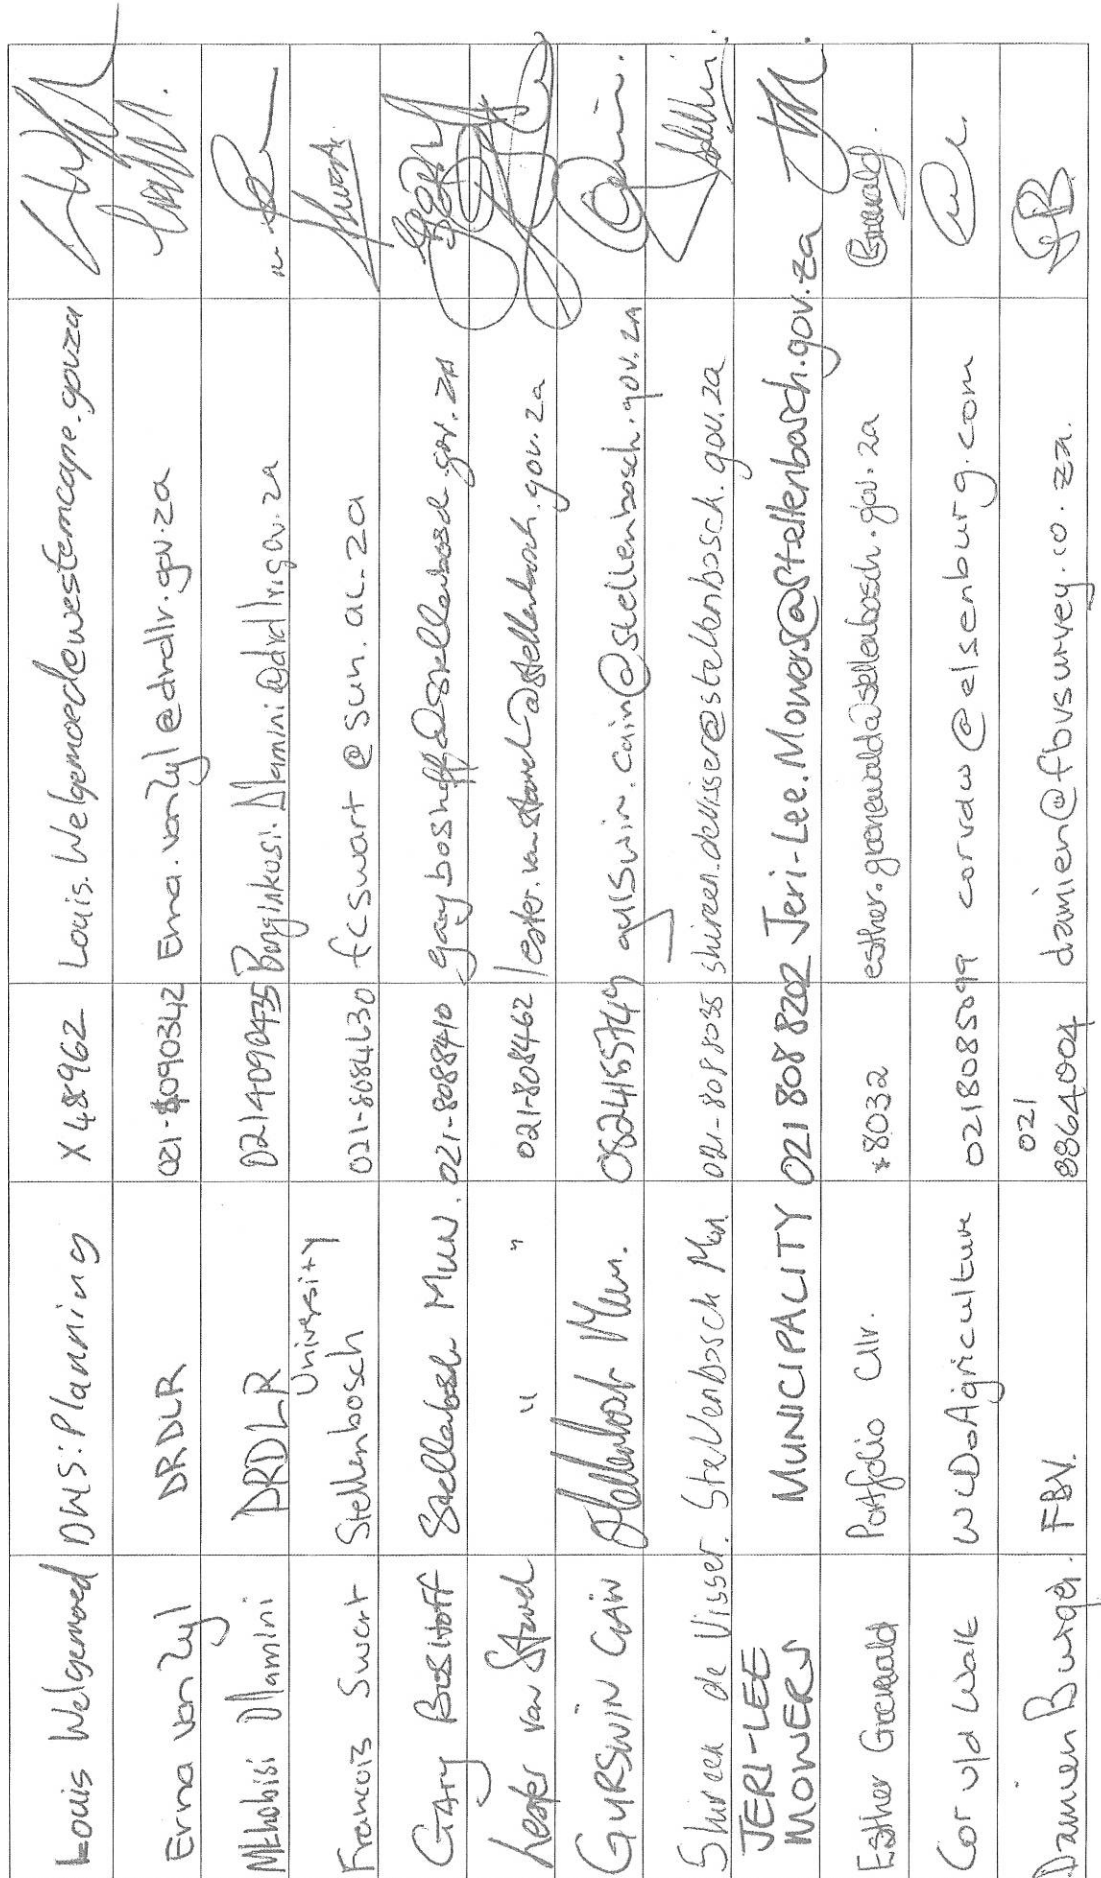 Louis Welgemoed DHS: Planning X48962 Louis.Welgemoed@westerncape.gov.za
Erna van Zyl DRDLR 021-4090342 Erna.vanZyl@drdlr.gov.za
Mkhobisi Dlamini DRDLR 0214090435 Dlamini@drdlr.gov.za
Francois Swart Stellenbosch University 021-8084630 fcswart@sun.ac.za
Gary Boshoff Stellenbosch Mun. 021-8088410 gary.boshoff@stellenbosch.gov.za
Lester van Stavel " " 021-808462 lester.vanstavel@stellenbosch.gov.za
GURSWIN CAIN Stellenbosch Mun. 0824155749 gurswin.cain@stellenbosch.gov.za
Shireen de Visser. Stellenbosch Mun. 021-8088035 shireen.devisser@stellenbosch.gov.za
JERI-LEE
MOWERS MUNICIPALITY 021 808 8202 Jeri-Lee.Mowers@stellenbosch.gov.za
Esther Groenewald Portfolio Cllr. *8032 esther.groenewald@stellenbosch.gov.za
Cor vd Walt WCDoAgriculture 0218085099 corvdw@elsenburg.com
Damien Burger. FBV. 021
8864004 damien@fbvsurvey.co.za.